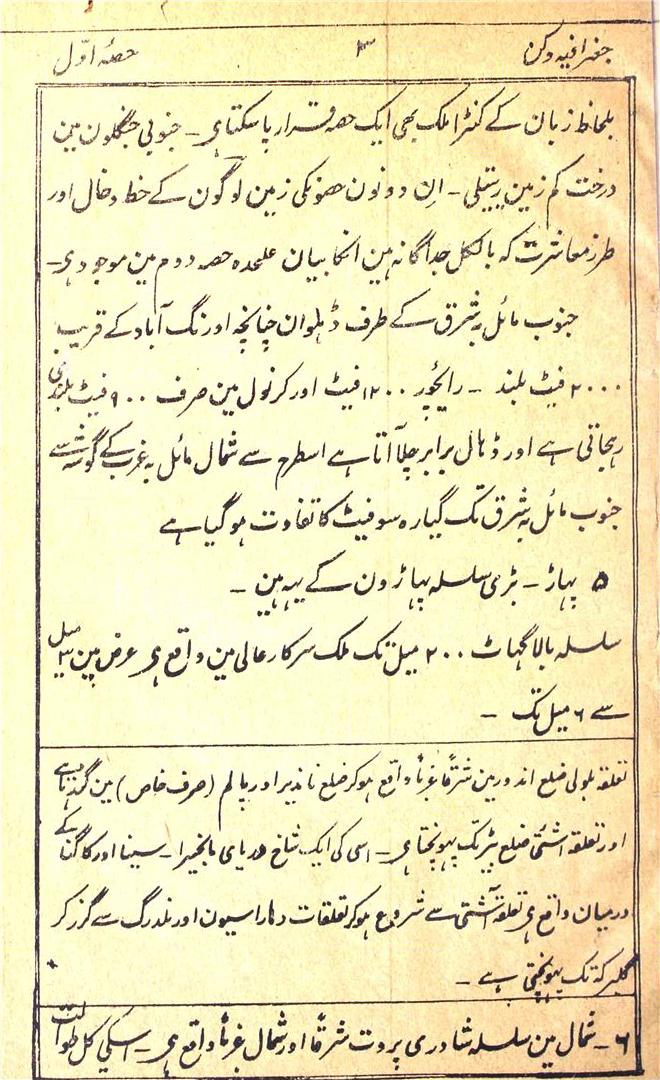 جغرافیہ دکن ۳ حصۂ اوّل
بلحاظ زبان کے کنٹرا ملک بھی ایک حصہ قرار پا سکتا ہی ۔ جنوبی جنگلون مین
درخت کم زمین ریتیلی ۔ اِن دونون حصونکی زمین لوگون کے خط و خال اور
طرز معاشرت کہ بالکل جداگانہ ہین انکا بیان علحدہ حصہ دوم مین موجود ہی۔
جنوب مائل بہ شرق کے طرف ڈہلوان چنانچہ اورنگ آباد کے قریب
۲۰۰۰ فیٹ بلند ۔ رائچور ۱۲۰۰ فیٹ اور کرنول مین صرف ۹۰۰ فیٹ بلندی
رہجاتی ہے اور ڈہال برابر چلا آتا ہے اسطرح سے شمال مائل بہ غرب کے گوشہ سے
جنوب مائل بہ شرق تک گیارہ سو فیٹ کا تفاوت ہو گیا ہے
۵ پہاڑ ۔ بڑی سلسلہ پہاڑون کے یہہ ہین ۔
سلسلہ بالا گہاٹ ۲۰۰ میل تک ملک سرکار عالی مین واقع ہی عرض مین ۳ میل
سے ۶ میل تک ۔
تعلقہ بلولی ضلع اندور مین شرقاً غرباً واقع ہو کر ضلع ناندیر اور پالم (صرف خاص) مین گذرتا ہے
اور تعلقہ اشٹی ضلع بیڑ تک پہونچتا ہی ۔ اسی کی ایک شاخ دریای مانجیرا ۔ سینا اور کاگنا کے
درمیان واقع ہی تعلقہ آشٹی سے شروع ہو کر تعلقات دہاراسیون اور نلدرگ سے گزر کر
گلبرگہ تک پہونچتی ہے ۔
۶ ۔ شمال مین سلسلہ شادری پروت شرقاً اور شمال غرباً واقع ہی ۔ اسکی کل طوالت